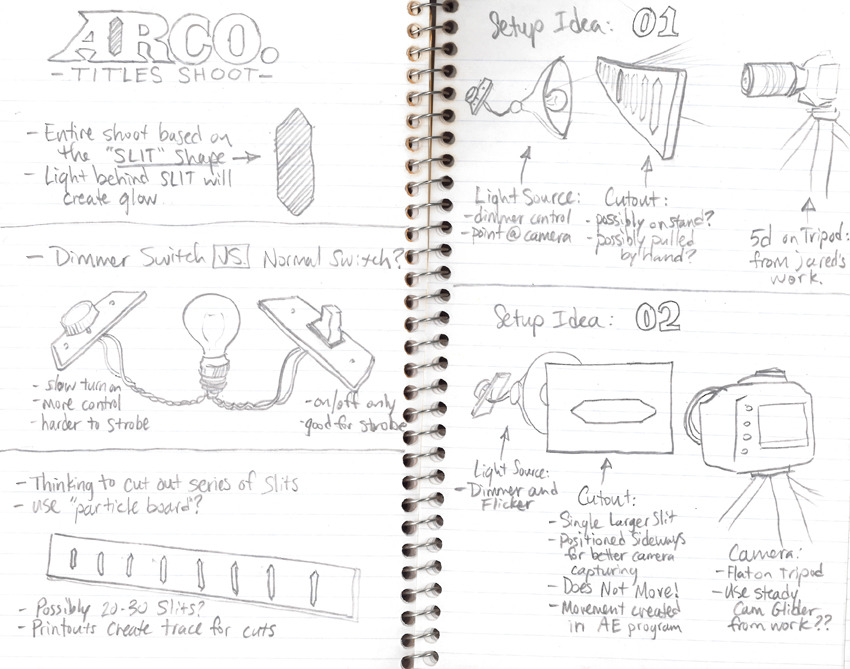 ARCO.
-TITLES SHOOT-
- Entire shoot based on
the "SLIT" Shape →
- Light behind SLIT will
create glow.
- Dimmer Switch VS. Normal Switch?
- slow turn on
- more control
- harder to strobe
- on/off only
- good for strobe
- Thinking to cut out series of Slits
- use "particle board"?
- Possibly 20-30 Slits?
- Printouts Create trace for cuts
Setup Idea: 01
Light Source:
- dimmer control
- point @ camera
Cutout:
- possibly on stand?
- possibly pulled
by hand?
5d on Tripod:
from jared's
work.
Setup Idea: 02
Light Source:
- Dimmer and
Flicker
Cutout:
- Single Larger Slit
- Positioned Sideways
for better camera
capturing
- Does Not Move!
- Movement created
in AE program
Camera:
- Flat on Tripod
- Use steady
Cam Glider
from work??